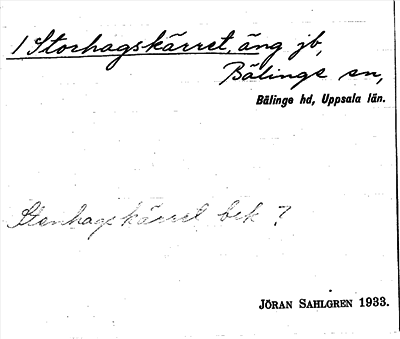 1 Storhagskärret, äng jb,
Bälinge sn,
Bälinge hd, Uppsala län.
Stenhagskärret bek ?
JÖRAN SAHLGREN 1933.